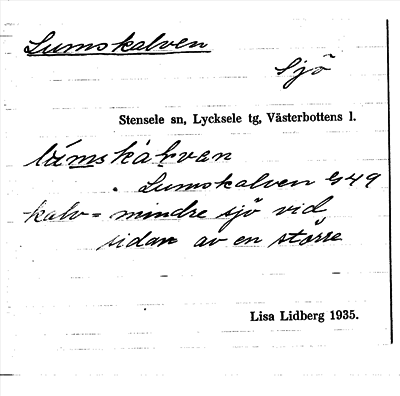 Lumskalven
Sjö
Stensele sn, Lycksele tg, Västerbottens l.
lúmskàḷvan
Lumskalven G49
kalv = mindre sjö vid
sidan av en större
Lisa Lidberg 1935.